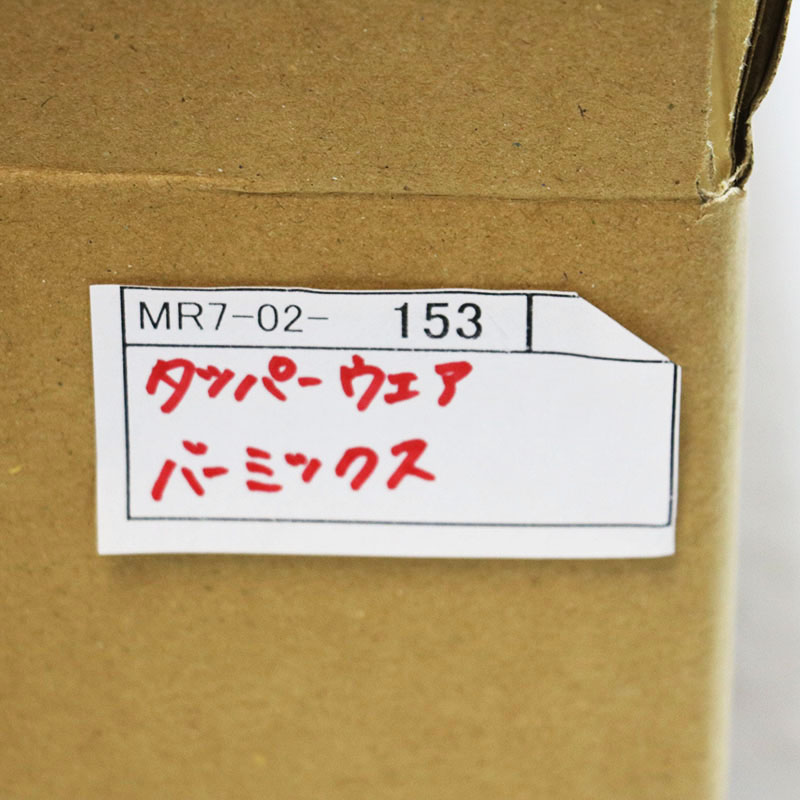 MR7-02- 153
タッパーウェア
バーミックス